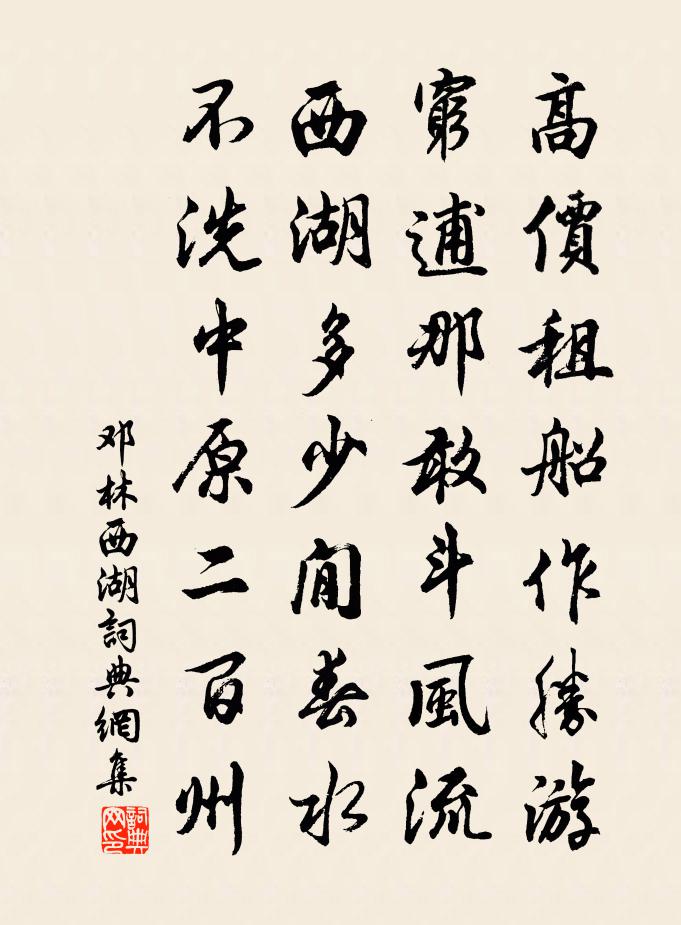 高價租船作勝游
窮逋那敢斗風流
西湖多少閒春水
不洗中原二百州
邓林西湖詞典網集
詞典網印